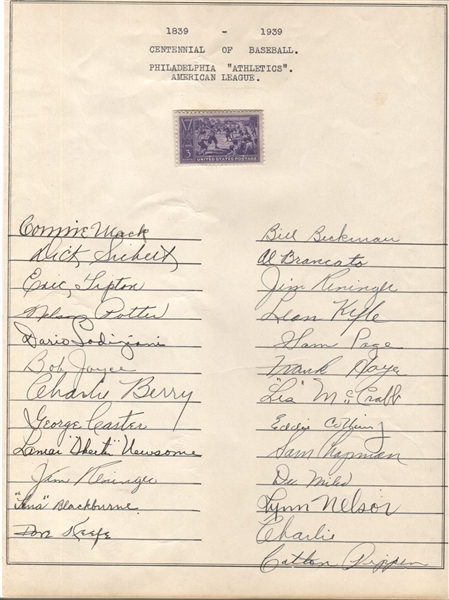 1839 - 1939
CENTENNIAL OF BASEBALL.
PHILADELPHIA "ATHLETICS".
AMERICAN LEAGUE.
3
UNITED STATES POSTAGE
Connie Mack
Dick Siebert
Eric Tipton
Nelson Potter
Dario Lodigiani
Bob Joyce
Charlie Berry
George Caster
Lamar "Skeeter" Newsome
Jim Reninger
"Lena" Blackburne
Don Keefe
Bill Beckman
Al Brancato
Jim Reninger
Leon Kyle
Sam Page
Frank Hayes
"Les" McCrabb
Eddie Collins Jr
Sam Chapman
Dee Miles
Lynn Nelson
Charlie
Cotton Pippen